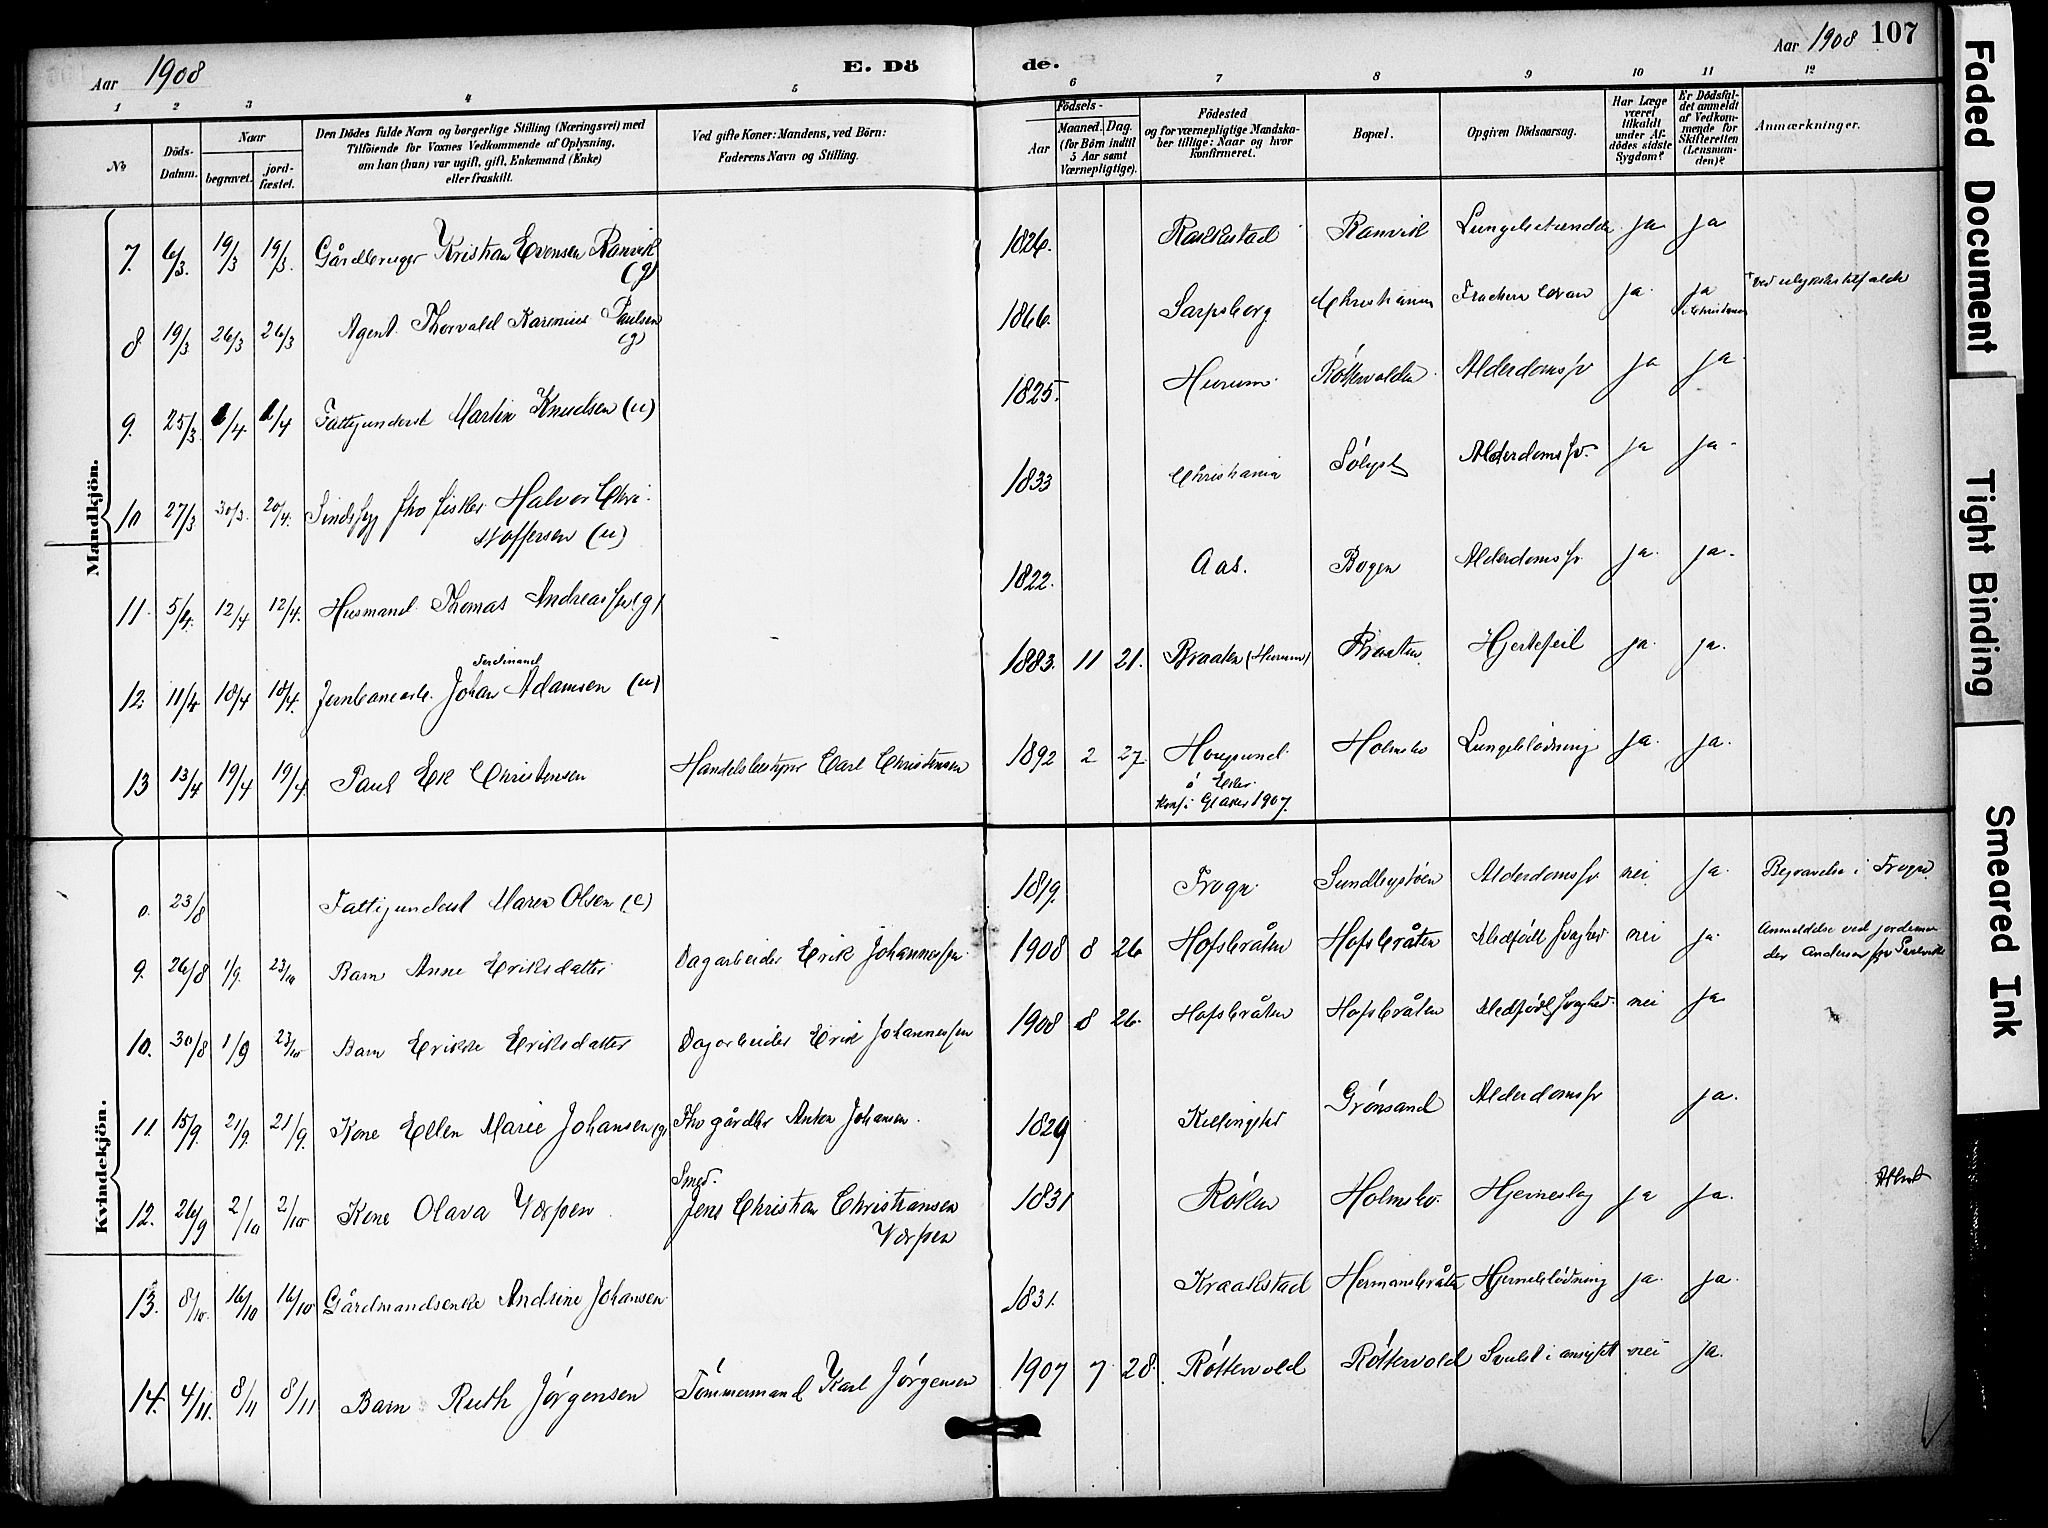 Aar 1908
E. Dö
de.
Aar 1908 107
1 2 3 4 5 6 7 8 9 10 11 12
No
Döds-Datum.
Naar
begravet.
jord-fæstet.
Den Dödes fulde Navn og borgerlige Stilling (Næringsvei) med
Tilföiende for Voxnes Vedkommende af Oplysning,
om han (hun) var ugift, gift, Enkemand (Enke)
eller fraskilt.
Ved gifte Koner: Mandens, ved Börn:
Faderens Navn og Stilling.
Födsels-
Aar
Maaned. Dag.
(for Börn indtil
5 Aar samt
Værnepligtige).
Födested
og for værnepligtige Mandska-
ber tillige: Naar og hvor
konfirmeret.
Bopæl.
Opgiven Dödsaarsag.
Har Læge
været
tilkaldt
under Af-
dödes sidste
Sygdom?
Er Dödsfal-
det anmeldt
af Vedkom-
mende for
Skifteretten
(Lensman-
den)?
Anmærkninger.
Mandkjön.
7. 6/3. 19/3 19/3. Gårdbruger Kristian Evensen Ramvik (g) 1826. Rakkestad Ramvik ja ja
8 19/3 26/3 26/3 Agent Thorvald Karenius Paulsen (g) 1866. Sarpsborg Christiania ja ja i Christiania + ved ulykkestilfælde
9. 25/3 1/4. 1/4 Fattigunderst Martin Knudsen (u) 1825. Hurum Röttevolden Alderdomssv ja ja
10 27/3 30/3. 20/4. Sindssyg fhv fisker Halvor Chri-
stoffersen (u) 1833 Christiania Sölyst Alderdomssv. ja ja
11. 5/4. 12/4 12/4. Husmand Thomas Andreassen (g) 1822. Aas. Bogen Alderdomssv ja. ja.
12. 11/4 18/4 18/4. Jernbanearb. Johan Ferdinand Adamsen (u) 1883. 11 21. Braaten (Hurum) Braaten Hjertefeil ja. ja.
13 13/4 19/4 19/4 Paul Ek Christensen Handelsbestyrer Carl Christensen 1892 2 27. Hougsund
ö Eker
Konf. i Glaker 1907. Holmsbo Lungeblödning ja. ja.
Kvindekjön.
8. 23/8 Fattigunderst Maren Olsen (e) 1819. Frogn Sundbystöen Alderdomssv nei ja. Begravelse i Frogn
9. 26/8 1/9. 23/10 Barn Anne Eriksdatter Dagarbeider Erik Johannessen 1908 8 26 Hofsbråten Hofsbråten Medfödt svaghed nei ja. Anmeldelse ved jordemo-
der Andersen
10. 30/8 1/9 23/10 Barn Erikke Eriksdatter Dagarbeider Erik Johannessen 1908 8 26. Hofsbråten Hofsbråten Medfödt svaghed. nei ja.
11. 15/9. 21/9. 21/9. Kone Ellen Marie Johansen (g) Fhv gårdbr Anton Johansen. 1829 Killingsbo Grönsand Alderdomssv ja.
12. 26/9 2/10 2/10 Kone Olava Værpen Smed.
Jens Christian Christiansen
Værpen 1831 Röken Holmsbo Hjerneslag ja ja. Attest
13. 8/10. 16/10 16/10 Gårdmandsenke Andrine Johansen 1831. Kraakstad Hermansbråten Hjerneblödning ja. ja.
14. 4/11. 8/11 8/11 Barn Ruth Jörgensen Tömmermand Karl Jörgensen 1907 7 28. Röttevold Röttevold Svulst i ansigtet nei ja.
Faded Document
Tight Binding
Smeared Ink